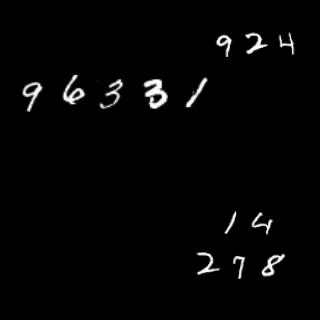 924
96331
14
278